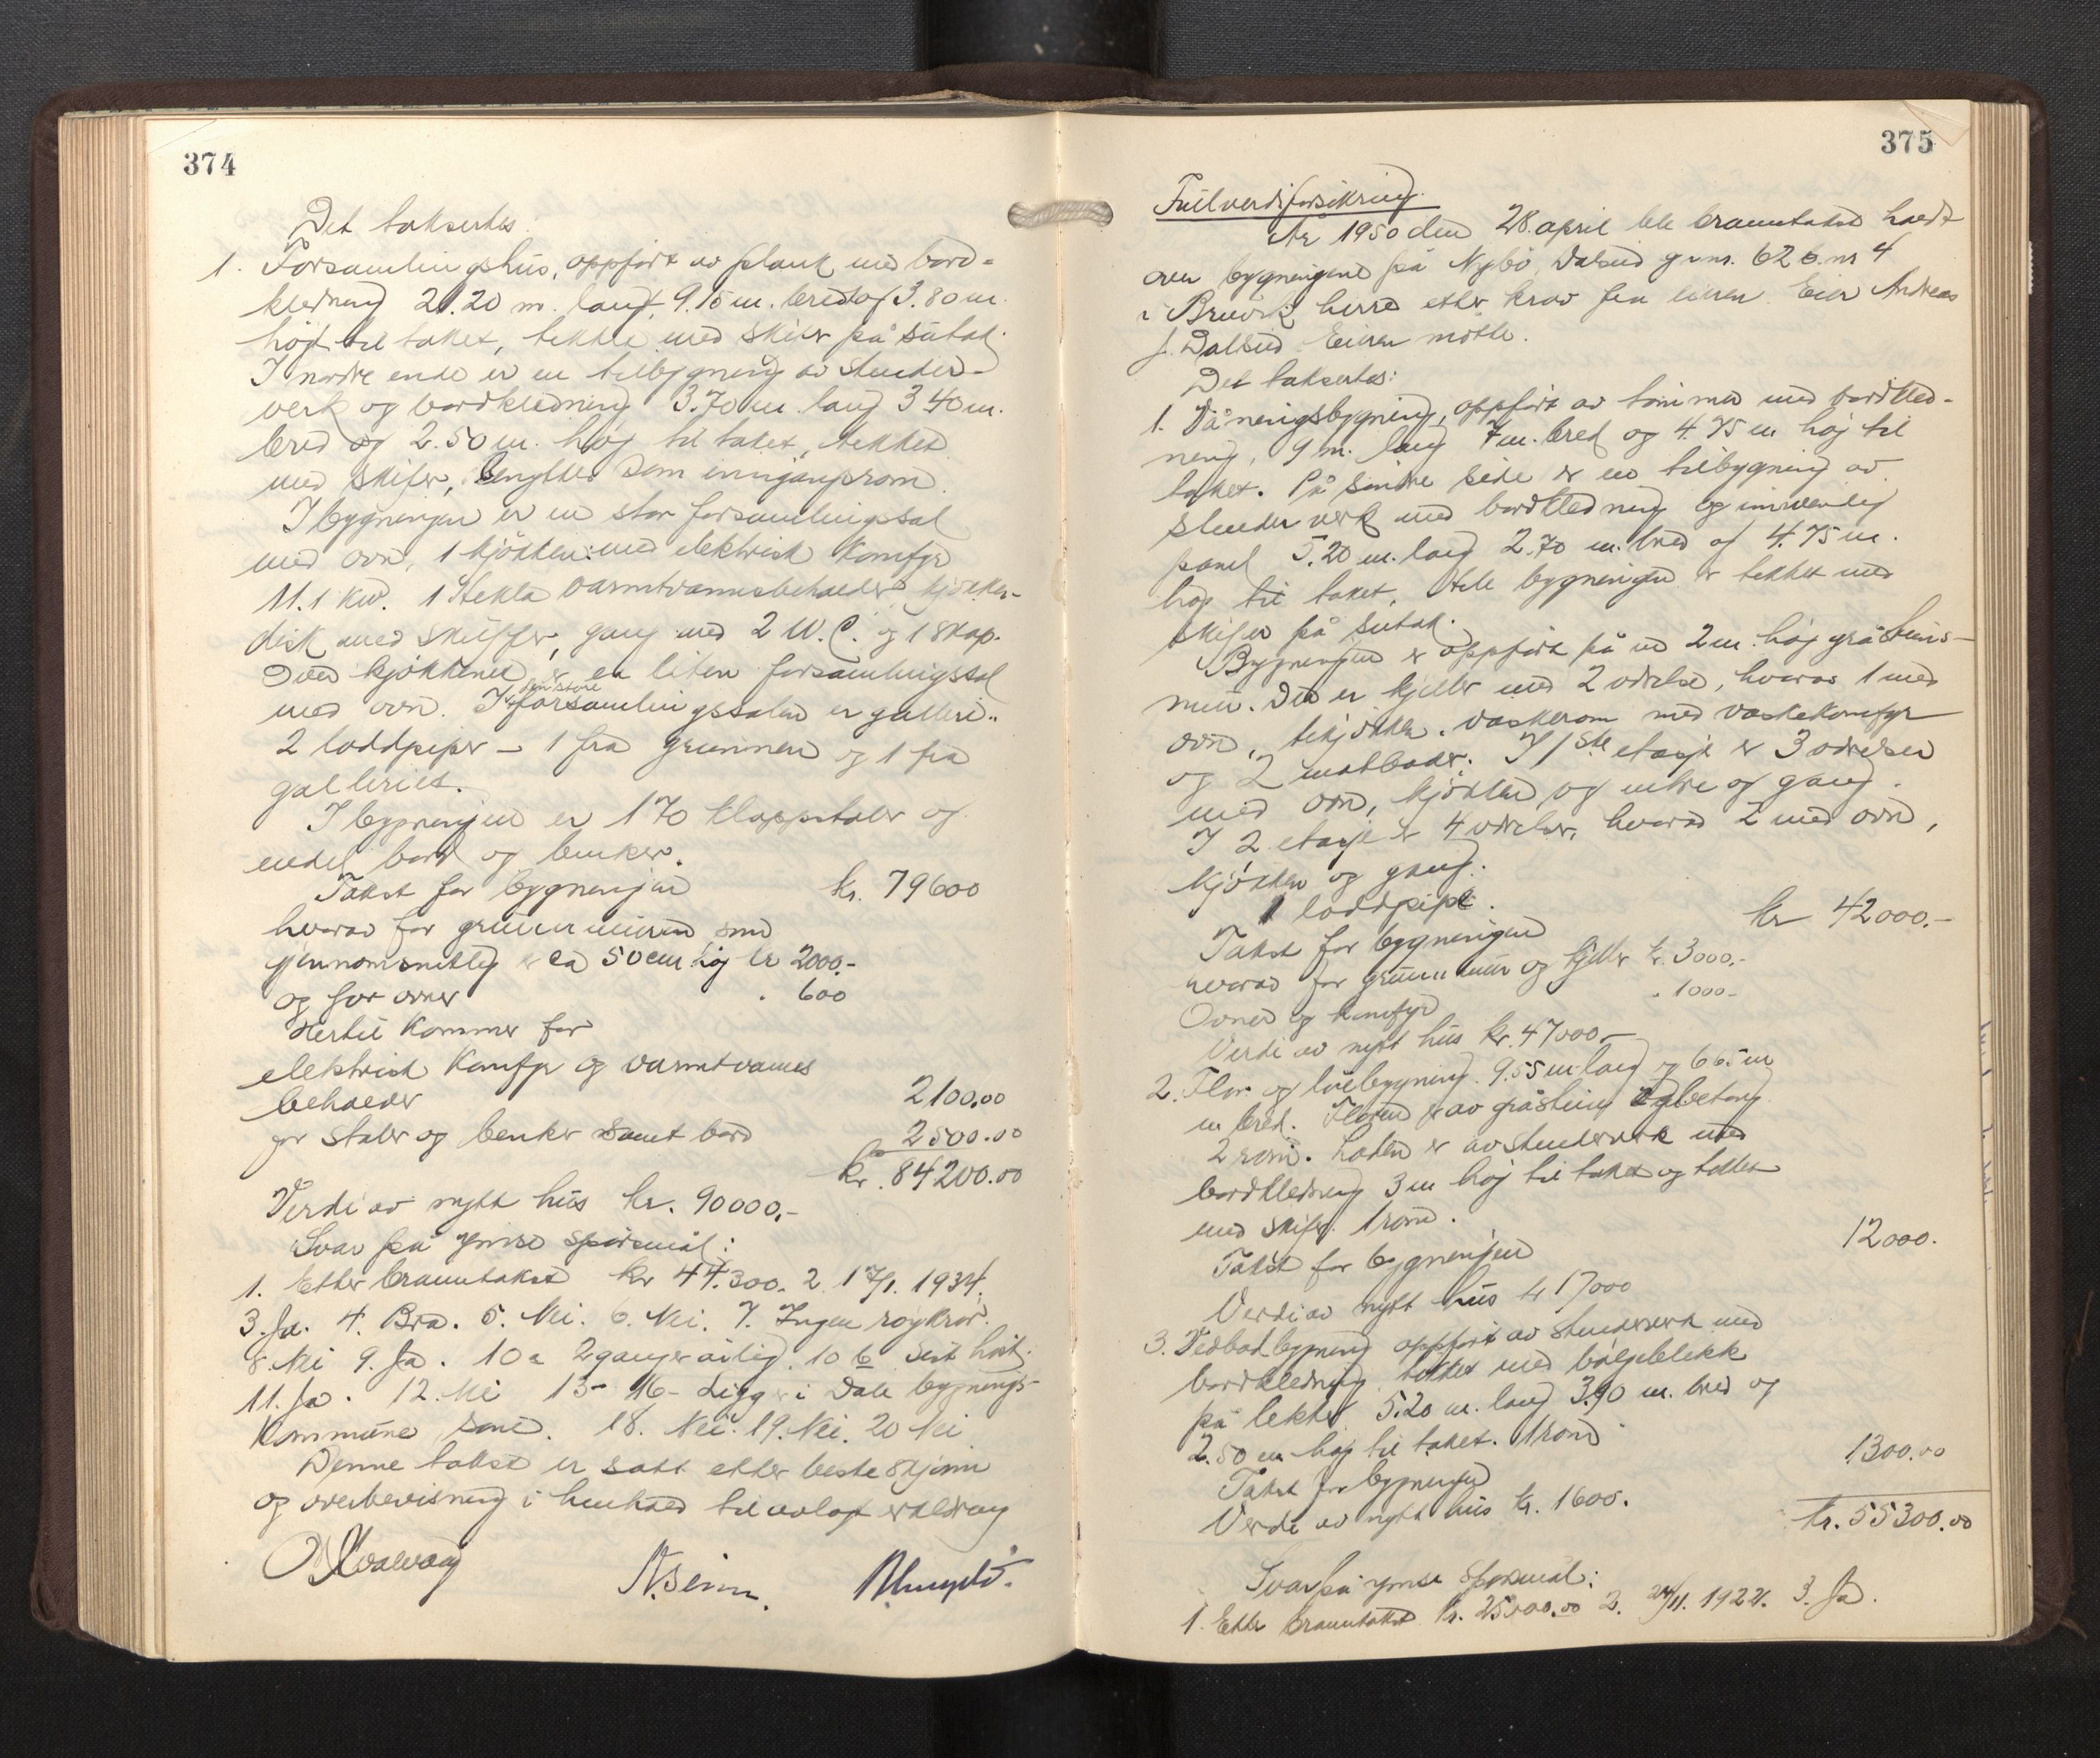 374
Det taksertes:
1. Forsamlingshus, oppført av plank med bord=
kledning 21.20 m. langt, 9.15 m. bredt og 3.80 m.
høgt til taket, tekket med skifer på sutak.
I nordre ende er en tilbygning av stender-
verk og bordkledning 3.70 m. lang 3 40 m.
bred og 2.50 m. høg til taket, tekket
med skifer, benyttes som inngangsrom.
I bygningen er en stor forsamlingssal
med ovn, 1 kjøkken med elektrisk komfyr
11.1 kw. 1 Stekla varmtvannsbeholder, kjøkken-
disk med skuffer, gang med 2 W.C. og 1 skap.
Ved kjøkkenet er en liten forsamlingssal
med ovn. I den store forsamlingssalen er galleri..
2 loddpiper - 1 fra grunnen og 1 fra
galleriet.
I bygningen er 170 klappstoler og
endel bord og benker.
Takst for bygningen kr. 79600
hvorav for grunnmuren som
gjennomsnitlig er ca 50 cm høg kr 2000.-
og for ovner . 600
Hertil kommer for
elektrisk komfyr og varmtvanns
beholder 2100.00
for stoler og benker samt bord 2500.00
kr. 84200.00
Verdi av nytt hus kr. 90000.-
Svar på ymse spørsmål:
1. Etter branntakst kr 44.300. 2. 17/1. 1934.
3. Ja. 4. Bra. 5. Nei. 6. Nei. 7. Ingen røykrør.
8. Nei 9. Ja. 10 a 2 ganger årlig. 10 b Sist høst.
11. Ja. 12. Nei 13- 16- Ligger i Dale bygnings-
kommune sone. 18. Nei. 19. Nei. 20 Nei
Denne takst er satt etter beste skjønn
og overbevisning i henhold til avlagt erklæring
375
Fullverdiforsikring.
År 1950 den 28. april ble branntakst holdt
over bygningene på Nybø, Dalseid g.nr. 62 b.nr 4
i Bruvik herred etter krav fra eieren. Eier Andreas
J. Dalseid Eieren møtte.
Det taksertes:
1. Våningsbygning, oppført av tømmer med bordkled-
ning, 9 m. lang 7 m. bred og 4.75 m høg til
taket. På søndre side er en tilbygning av
stenderverk med bordkledning og innvendig
panel 5.20 m. lang 2.70 m. bred og 4.75 m.
høg til taket. Hele bygningen er tekket med
skifer på sutak.
Bygningen er oppført på en 2 m. høg gråsteins-
mur. Der er kjeller med 2 værelse, hvorav 1 med
ovn, tekjøkken. vaskerom med vaskekomfyr
og 2 matboder. I 1ste etasje er 3 værelser
med ovn, kjøkken og entre og gang.
I 2 etasje er 4 værelser, hvorav 2 med ovn,
kjøkken og gang.
1 loddpipe.
Takst for bygningen kr 42000.-
hvorav for grunnmur og kjeller kr. 3000.-
Ovner og komfyr . 1000-
Verdi av nytt hus kr. 47000.-
2. Flor og løebygning. 9.55 m. lang og 6 65 m
m bred. Floren er av gråstein og betong
2 rom. Løden er av stenderverk med
bordkledning 3 m høg til taket og tekket
med skifer. 1 rom.
Takst for bygningen 12000.
Verdi av nytt hus kr 17000
3. Vedbodbygning oppført av stenderverk med
bordkledning tekket med bølgeblekk
på lekter 5.20 m. lang 3.90 m. bred og
2.50 m. høg til taket. 1 rom
Takst for bygningen 1300.00
Verdi av nytt hus kr. 1600.
kr. 55300.00
Svar på ymse spørsmål:
1. Etter branntakst kr. 25000.00 2. 24/11. 1922. 3. Ja.